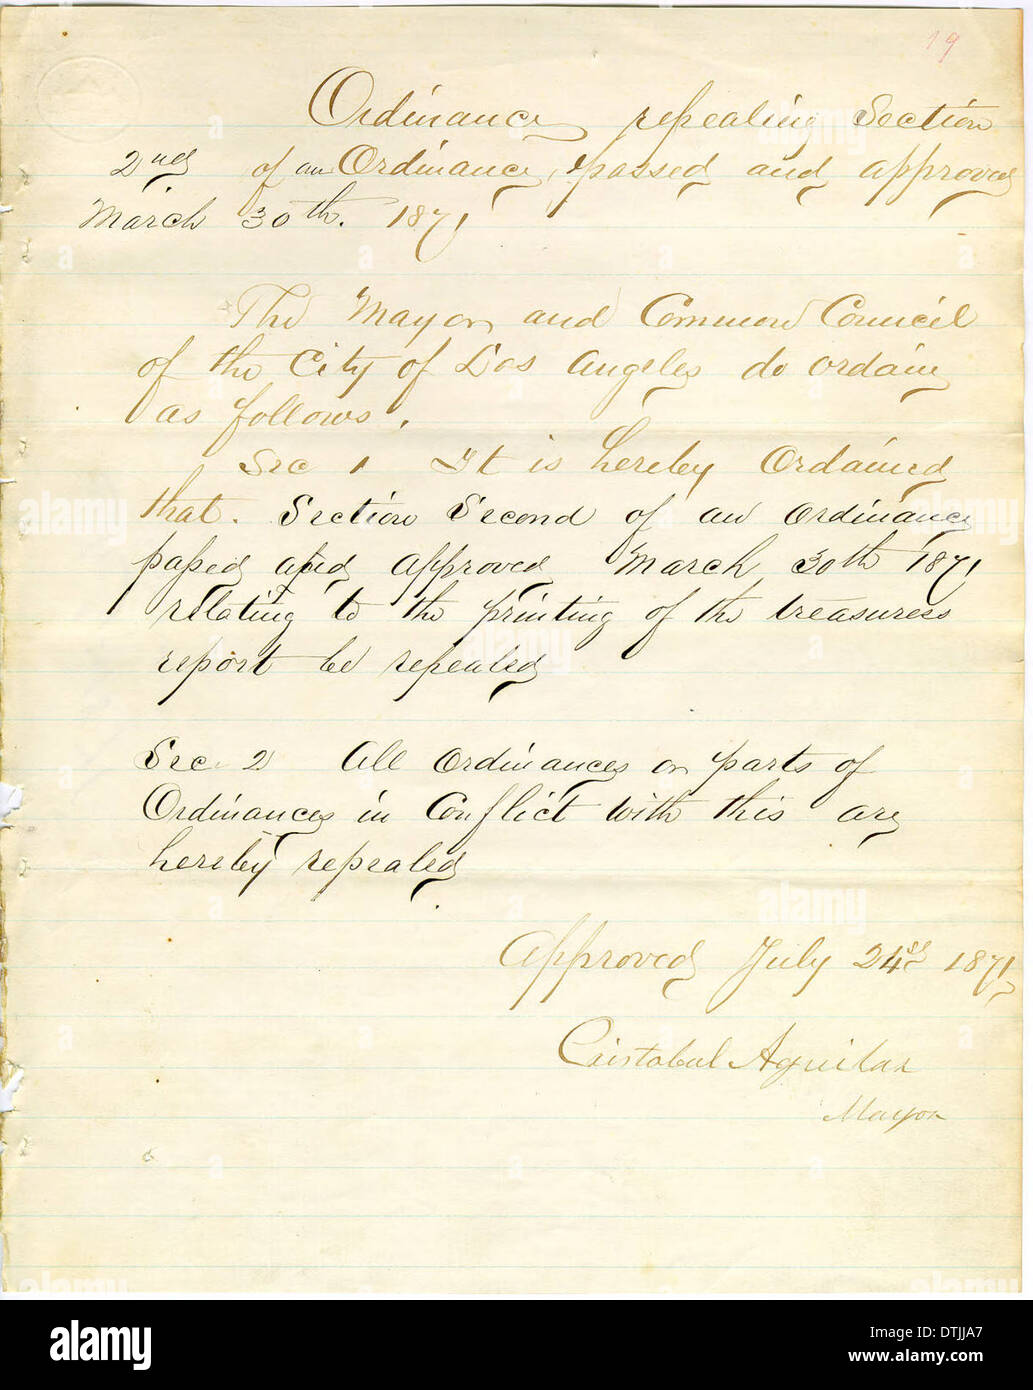 19
Ordinance repealing Section
2nd of an Ordinance, passed and approved
March 30th. 1871
The Mayor and Common Council
of the City of Los Angeles do ordain
as follows.
Sec 1 It is hereby Ordained
that. Section Second of an Ordinance
passed and approved March 30th 1871
relating to the printing of the treasurers
report be repealed
Sec. 2 All Ordinances or parts of
Ordinances in Conflict with this are
hereby repealed
Approved July 24st 1871
Cristobal Aguilar
Mayor
alamy
Image ID: DTJJA7
www.alamy.com